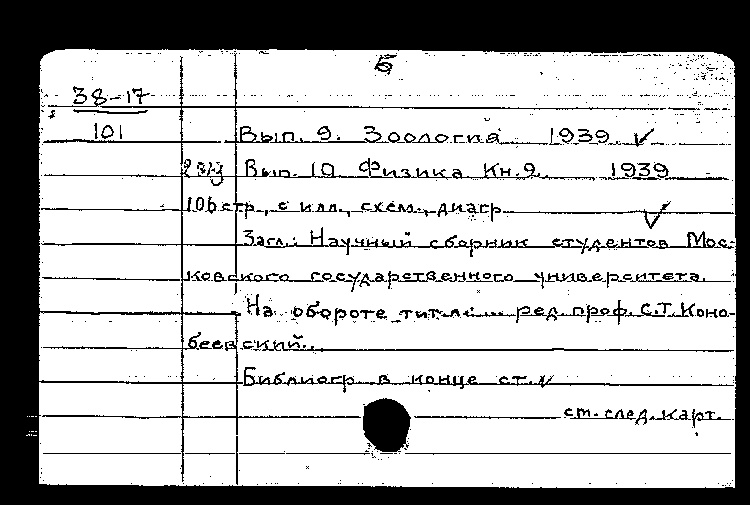 5
38-17
101
Вып. 9. Зоология 1939
Вып. 10 Физика Кн. 2. 1939
106 стр., с илл., схем., диагр.
Загл.: Научный сборник студентов Мос-
ковского государственного университета.
На обороте тит.л.: ... ред. проф. С.Т. Коно-
беевский...
Библиогр. в конце ст.
см. след. карт.